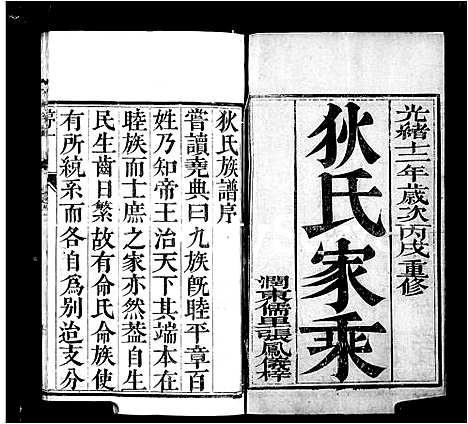 光緒十二年歲次丙戌重修
狄氏家乘
潤東儒里張鳳儀梓
狄氏族譜序
嘗讀堯典曰九族旣睦平章百
姓乃知帝王治天下其端本在
睦族而士庶之家亦然葢自生
民生齒日繁故有命氏命族使
有所統系而各自爲別迨支分